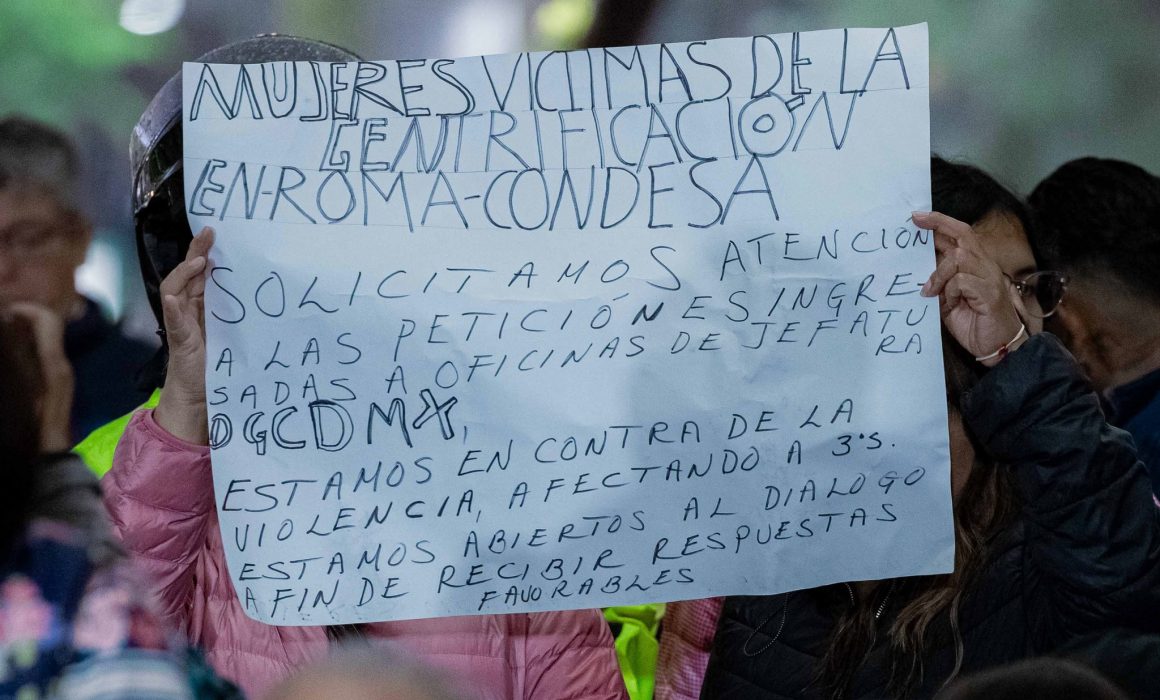 MUJERES VICTIMAS DE LA
GENTRIFICACIÓN
EN-ROMA-CONDESA
SOLICITAMOS ATENCION
A LAS PETICIÓNES INGRE-
SADAS A OFICINAS DE JEFATU
RA
DGCDMX,
ESTAMOS EN CONTRA DE LA
VIOLENCIA, AFECTANDO A 3ºS.
ESTAMOS ABIERTOS AL DIALOGO
A FIN DE RECIBIR RESPUESTAS
FAVORABLES